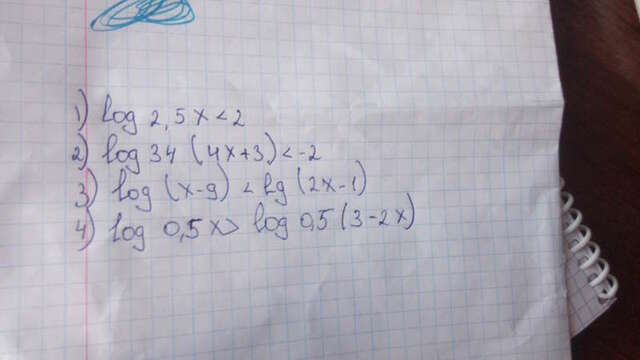 1) log 2,5 x < 2
2) log 34 (4x+3) < -2
3) log (x-9) < lg (2x-1)
4) log 0,5 x > log 0,5 (3-2x)